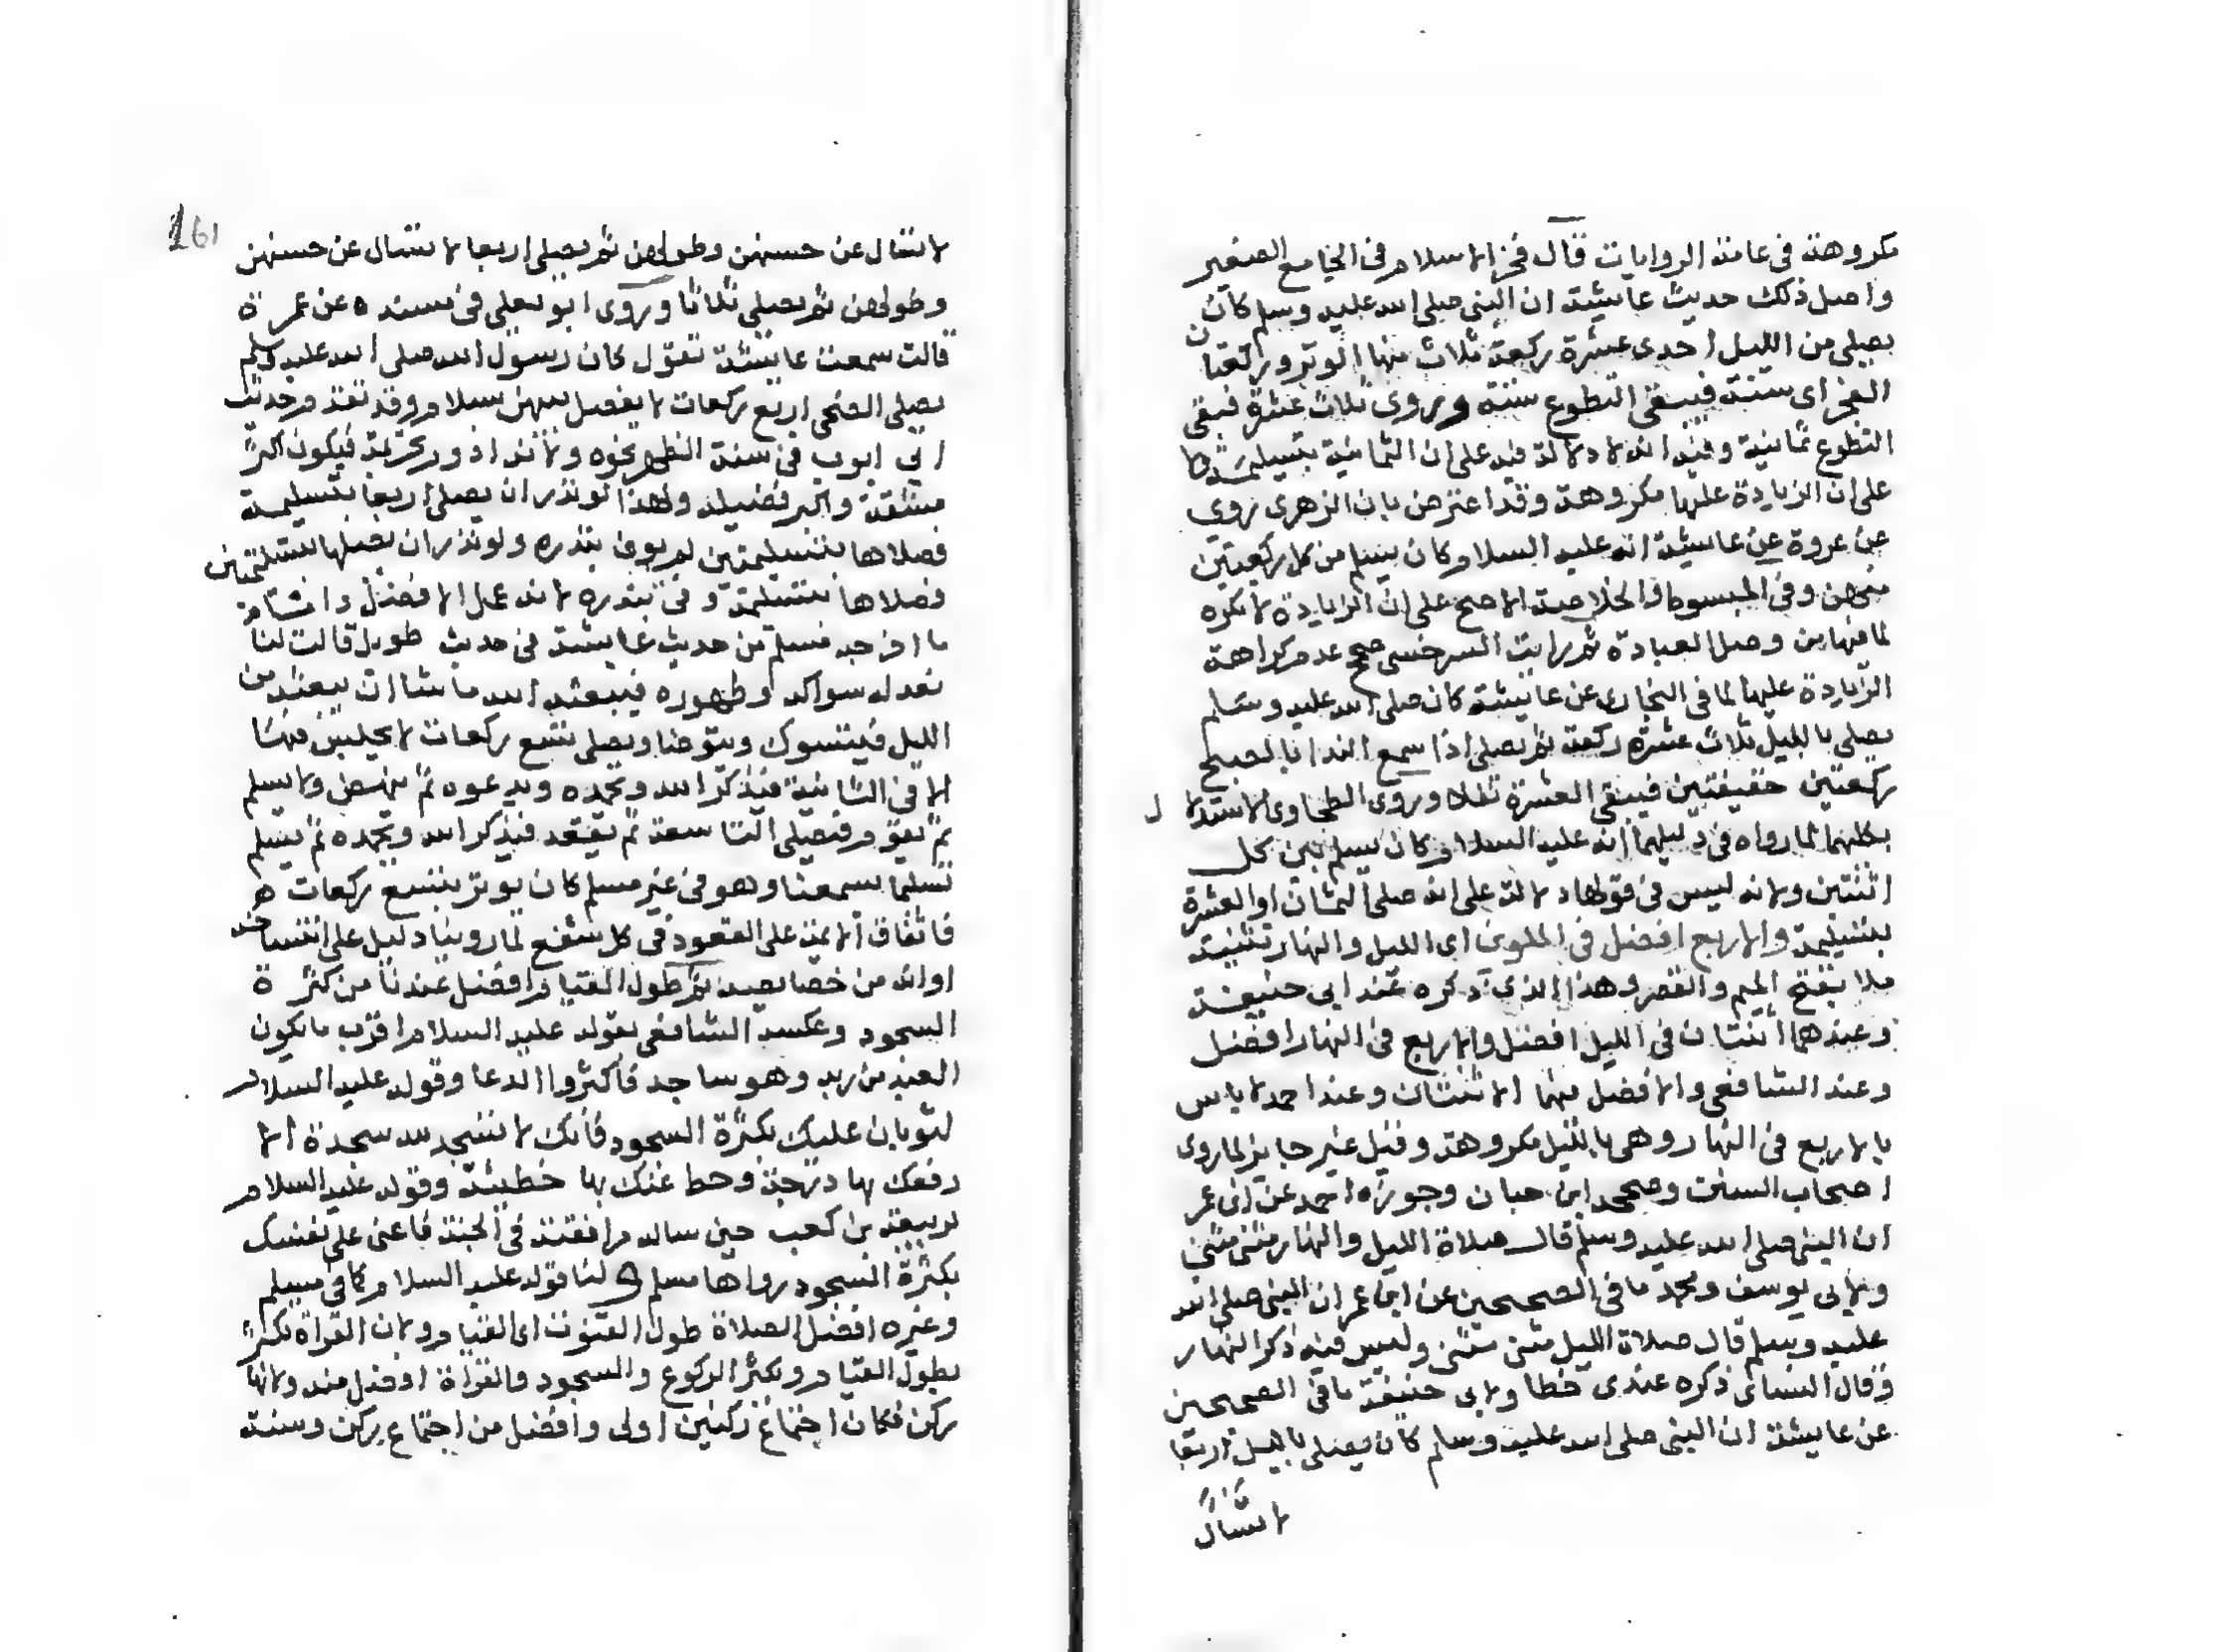 مكروهة في عامة الروايات قال فخر الاسلام في الجامع الصغير
واصل ذلك حديث عايشة ان النبي صلى الله عليه وسلم كان
يصلي من الليل احدى عشرة ركعة ثلاث منها الوتر وركعتان
الفجر اي سنته فيبقى التطوع ستة وروى ثلاث عشرة فبقى
التطوع ثمانية وفيه انه لا دلالة فيه على ان الثمانية بتسليمة ولا
على ان الزيادة عليها مكروهة وقد اعترض بان الزهري روى
عن عروة عن عايشة انه عليه السلام كان يسلم من كل ركعتين
منهن وفي المبسوط والخلاصة الاصح على ان الزيادة لا تكره
لما فيها من وصل العبادة ثم رايت السرخسي صحح عدم كراهة
الزيادة عليها لما في البخاري عن عائيشة كان صلى الله عليه وسلم
يصلي بالليل ثلاث عشرة ركعة ثم يصلي اذا سمع الندا بالصبح
ركعتين خفيفتين فيبقى العشرة نفلا وروى الطحاوي الاستدلال
بكلهما لما رواه في دليلهما انه عليه السلام كان يسلم بين كل
اثنتين ولانه ليس في قولها دلالة على انه صلى الثمان او العشرة
بتسليمة والاربع افضل في الملوين اى الليل والنهار تثنية
ملا بفتح الميم والقصر وهذا الذي ذكره عند ابى حنيفة
وعندهما اثنتان في الليل افضل والاربع في النهار افضل
وعند الشافعي والافضل منهما الاثنتان وعند احمد لا باس
بالاربع في النهار وهي بالليل مكروهة وقيل غير جايز لما روى
اصحاب السنن وصححه ابن حبان وجوزه احمد عن ابن عمر
ان النبي صلى الله عليه وسلم قال صلاة الليل والنهار مثنى مثنى
ولابى يوسف ومحمد ما في الصحيحين عن ابن عمر ان النبي صلى الله
عليه وسلم قال صلاة الليل مثنى مثنى وليس فيه ذكر النهار
وقال النسائى ذكره عندى خطا ولابى حنيفة ما في الصحيحين
عن عايشة ان النبي صلى الله عليه وسلم كان يصلى بالليل اربعا
لا تسال
161
لا تسال عن حسنهن وطولهن ثم يصلى اربعا لا تسال عن حسنهن
وطولهن ثم يصلى ثلاثا وروى ابو يعلى في مسنده عن عمرة
قالت سمعت عائشة تقول كان رسول الله صلى الله عليه وسلم
يصلى الضحى اربع ركعات لا يفصل بينهن بسلام وقد تقدم حديث
ابي ايوب في سنة الظهر نحوه ولانه ادوم تحريمة فيكون اكثر
مشقة واكبر فضيلة ولهذا لو نذر ان يصلى اربعا بتسليمة
فصلاها بتسليمتين لم يوف بنذره ولو نذر ان يصلها بتسليمتين
فصلاها بتسليمة وفى بنذره لانه عمل الافضل وامـا
ما اخرجه مسلم من حديث عايشة في حديث طويل قالت كنا
نعد له سواكه وطهوره فيبعثه الله ما شا ان يبعثه من
الليل فيتسوك ويتوضا ويصلى تسع ركعات لا يجلس فيها
الا في الثامنة فيذكر الله ويحمده ويدعوه ثم ينهض ولا يسلم
ثم يقوم فيصلى التاسعة ثم يقعد فيذكر الله ويحمده ثم يسلم
تسليما يسمعنا وهو في غير مسلم كان يوتر بتسع ركعات
فاتفاق الائمة على القعود في كل شفع لما روينا دليل على انتساخه
او انه من خصايصه ثم طول القيام افضل عندنا من كثرة
السجود وعكسه الشافعي لقوله عليه السلام اقرب ما يكون
العبد من ربه وهو ساجد فاكثروا الدعا وقوله عليه السلام
لثوبان عليك بكثرة السجود فانك لا تسجد لله سجدة الا
رفعك بها درجة وحط عنك بها خطيئة وقوله عليه السلام
لربيعة بن كعب حين ساله مرافقته في الجنة فاعنى على نفسك
بكثرة السجود رواها مسلم ولنا قوله عليه السلام كما في مسلم
وغيره افضل الصلاة طول القنوت اى القيام ولان القراة تكثر
بطول القيام وبكثر الركوع والسجود والقراة افضل منه ولانها
ركن فكان اجتماع ركنين اولى وافضل من اجتماع ركن وسنة